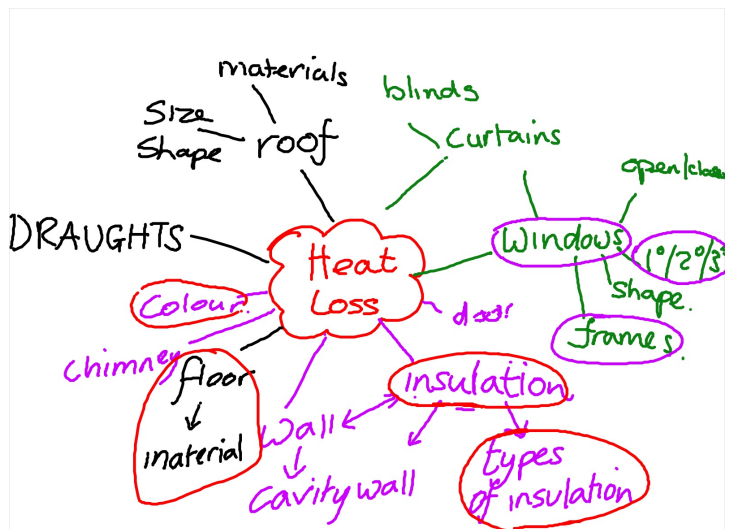 materials
Size
Shape
roof
blinds
Curtains
open/close
DRAUGHTS
Windows
1°/2°/3°
Heat
Loss
Colour?
shape.
door
frames.
chimney
floor
material
insulation
Wall
Cavity wall
types
of insulation